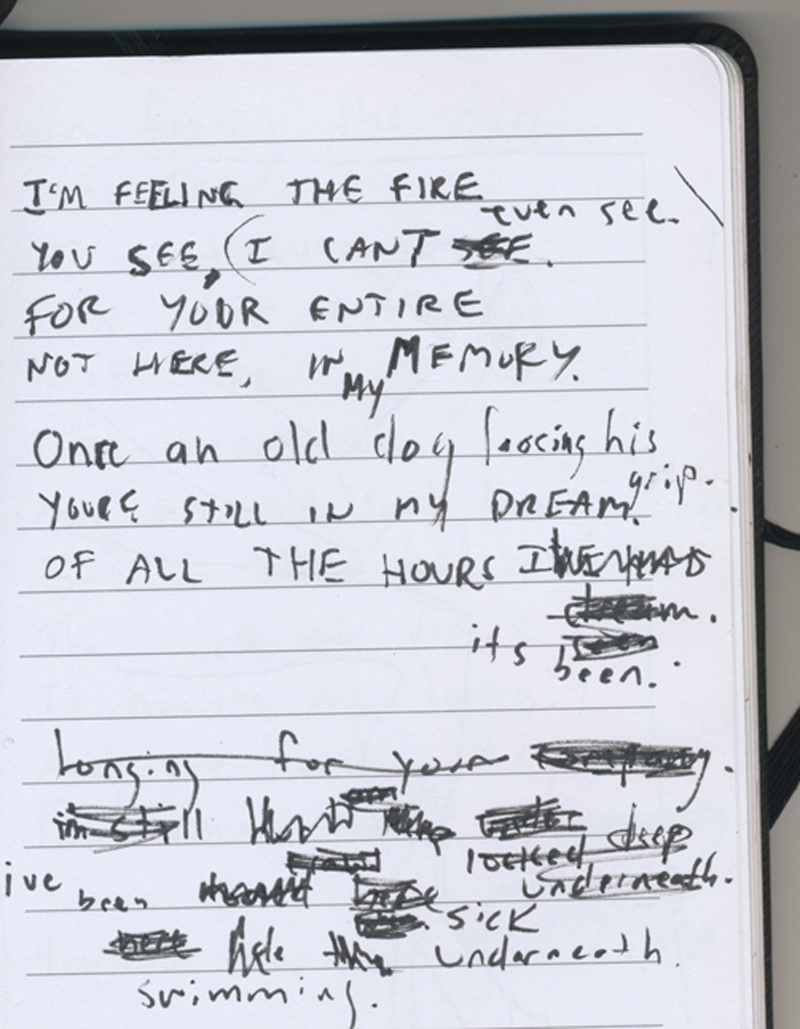 I'M FEELING THE FIRE
even see.
YOU SEE, (I CANT SEE.
FOR YOUR ENTIRE
NOT HERE, IN MY MEMORY.
Once an old dog loosing his
grip.
YOURE STILL IN MY DREAM.
OF ALL THE HOURS
its
been.
Longing for your company.
im still
locked deep
ive been underneath.
sick
here underneath.
swimming.